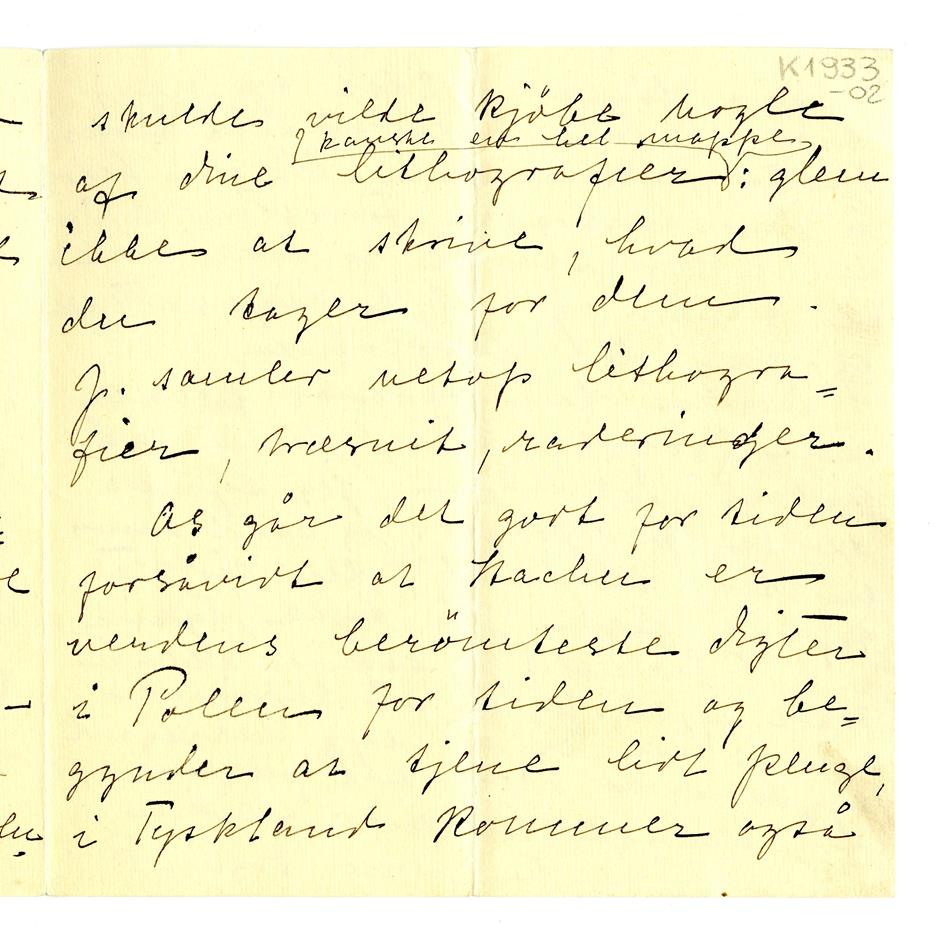 K1933
-02
skulde vilde kjöbe nogle
kanske en hel mappe
af dine lithografier): glem
ikke at skrive, hvad
du tager for dem.
J. samler netop lithogra=
fier, træsnit, raderinger.
Os går det godt for tiden
forsåvidt at Stachu er
verdens berömteste digter
i Polen for tiden og be=
gynder at tjene lidt penge,
i Tyskland kommer også